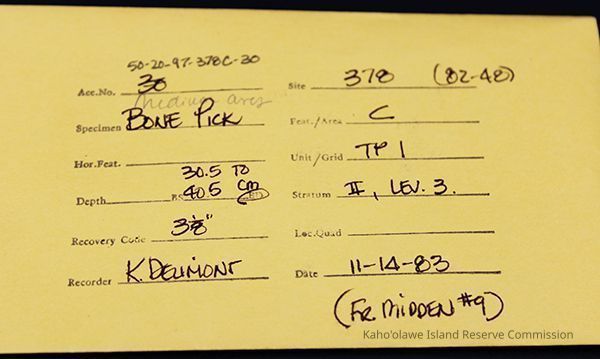 50-20-97-378C-30
Acc.No. 30 Site 378 (82-48)
Medium
Specimen BONE PICK Feat./Area C
Hor.Feat. Unit/Grid TP 1
30.5 TO
Depth BS 40.5 cm Stratum II, LEV. 3.
Recovery Code 3 1/8" Loc.Quad
Recorder K. DELIMONT Date 11-14-83
(FR. MIDDEN #9)
Kaho'olawe Island Reserve Commission